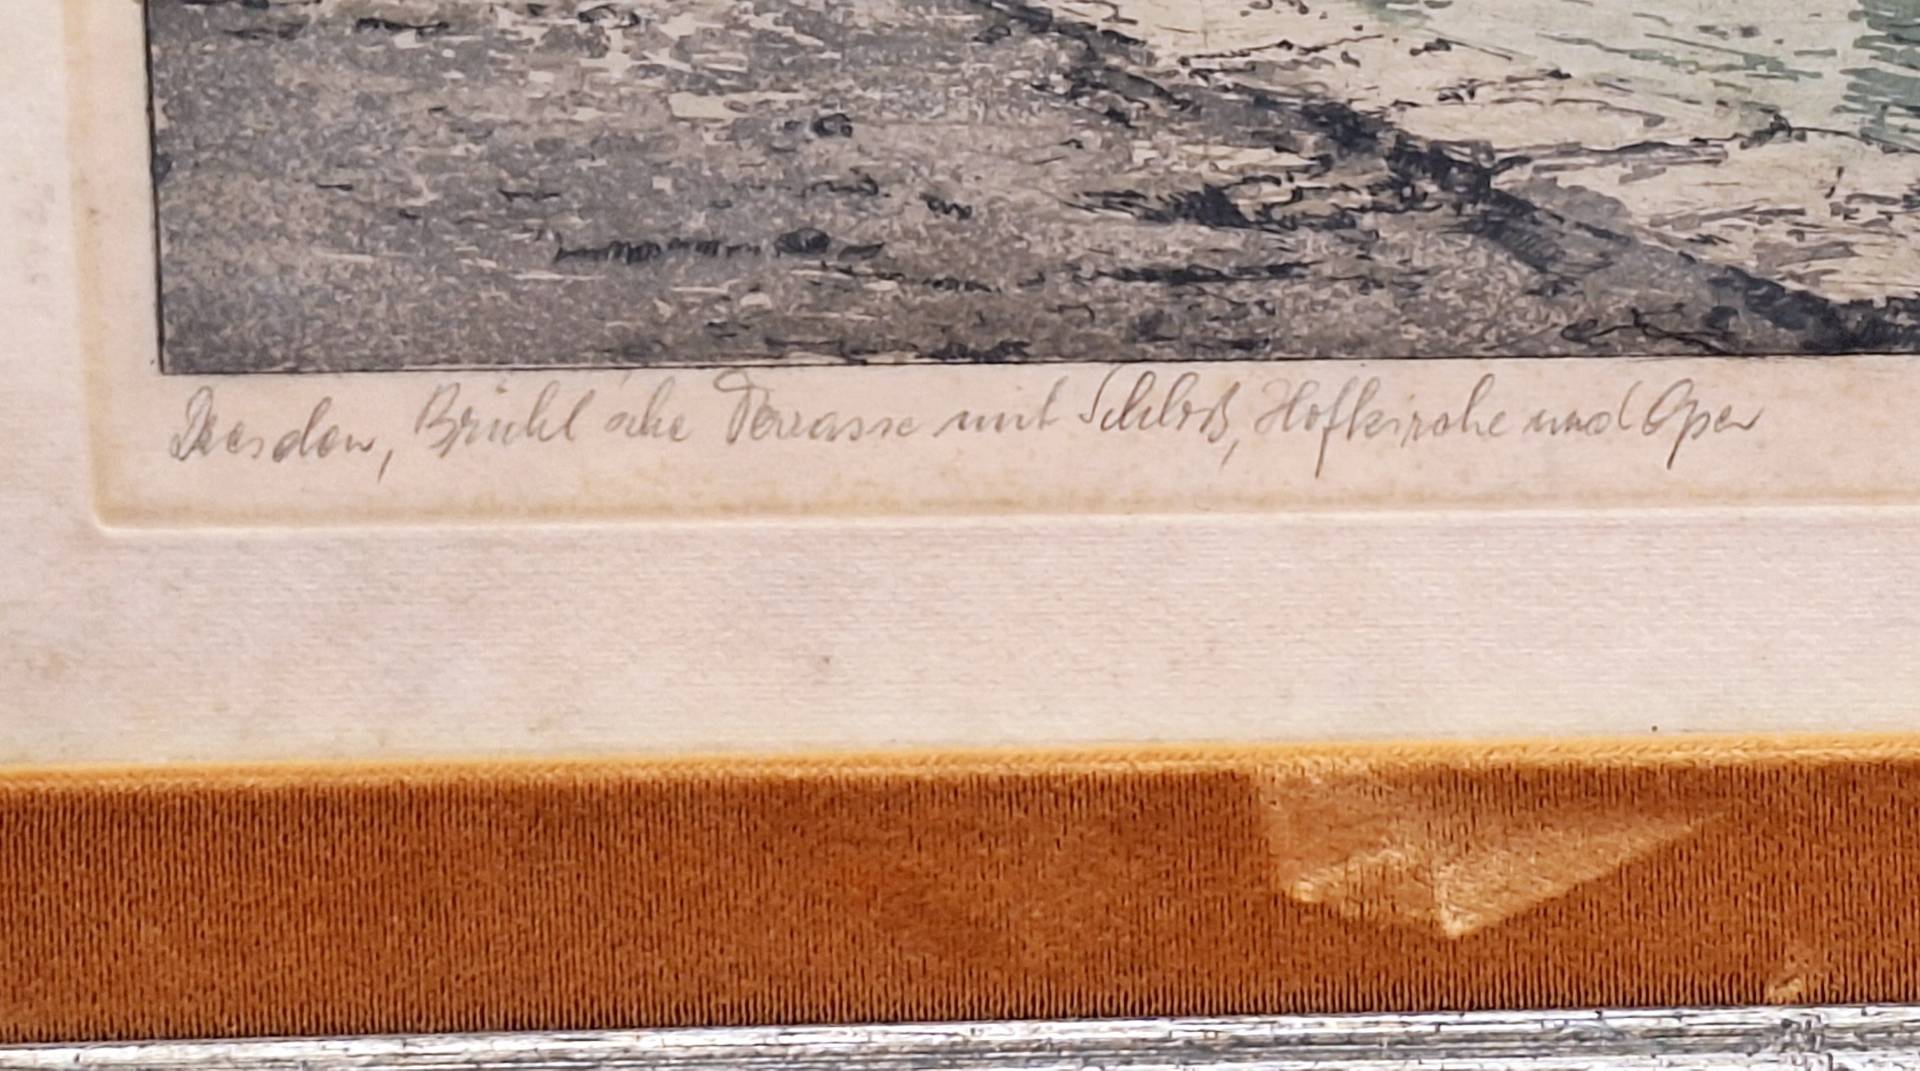 Dresden, Brühl'sche Terrasse mit Schloß, Hofkirche und Oper